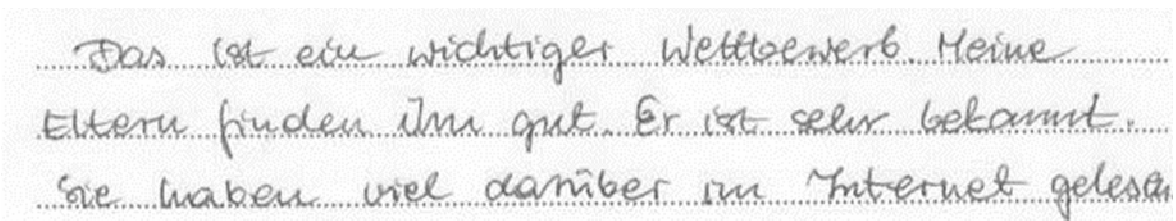 Das ist ein wichtiger Wettbewerb. Meine
Eltern finden ihn gut. Er ist sehr bekannt.
Sie haben viel darüber im Internet gelesen